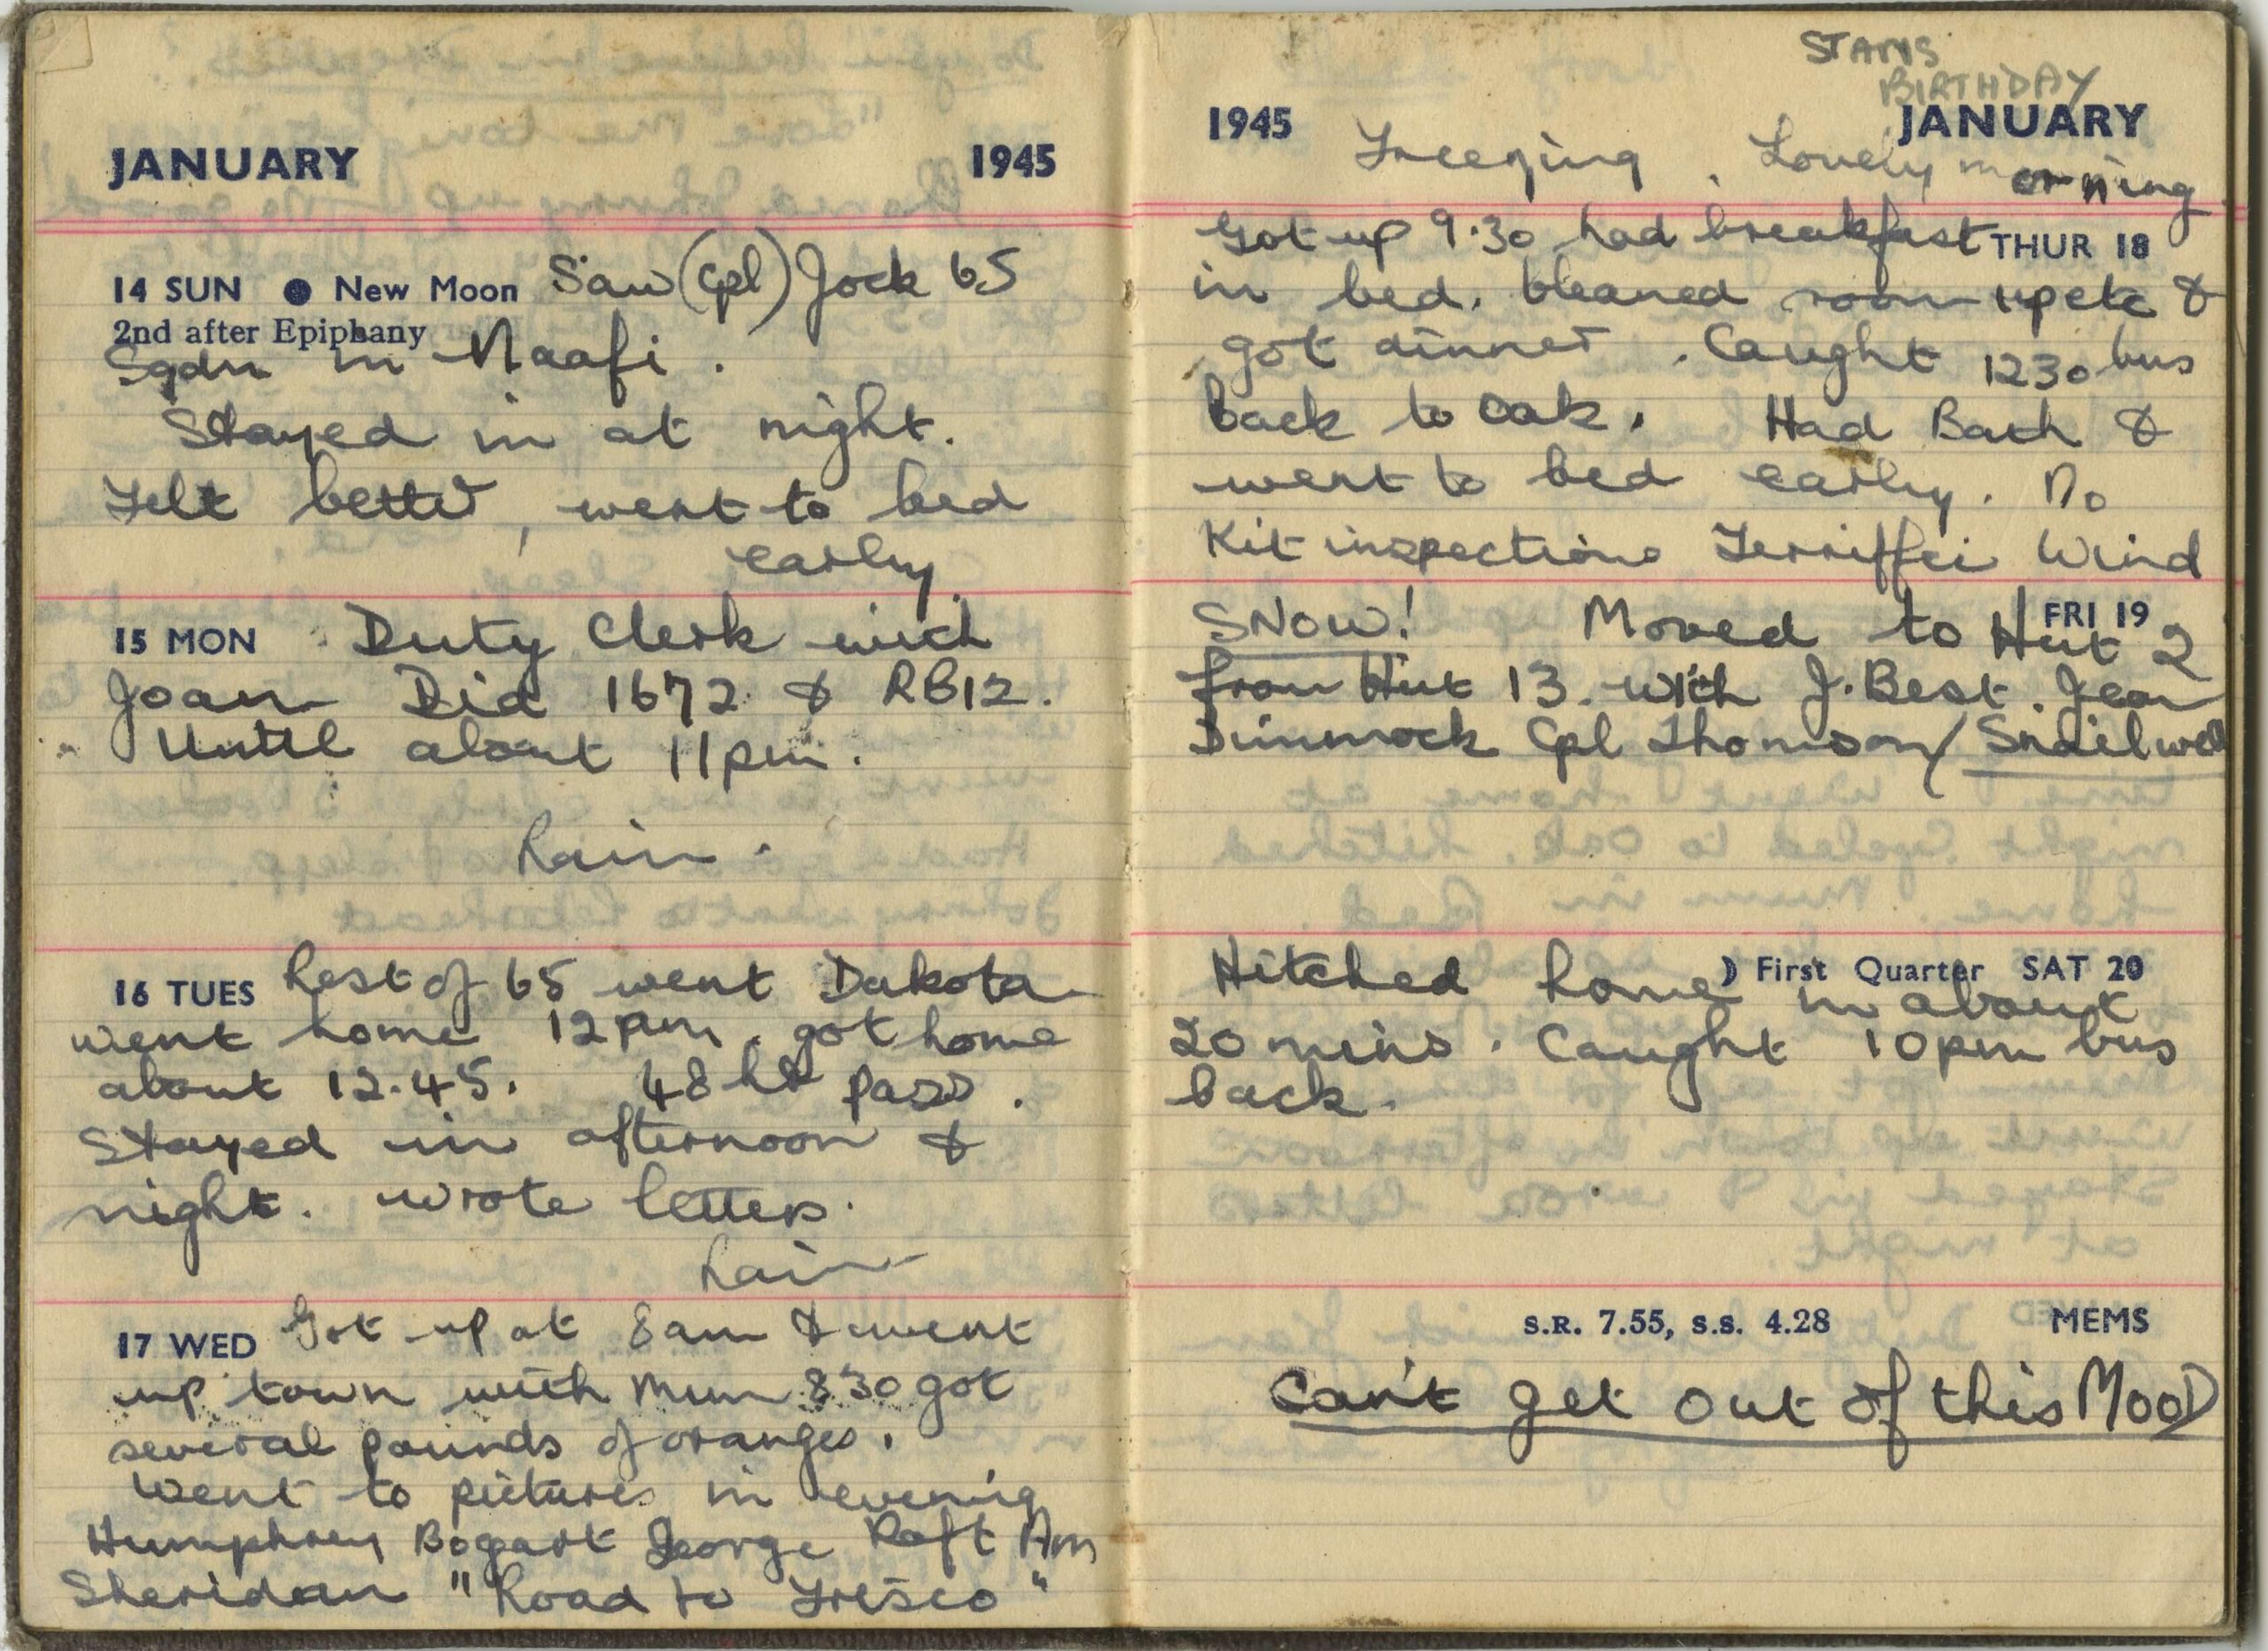 JANUARY 1945
14 SUN ● New Moon Saw (Cpl) Jock 65
2nd after Epiphany
Sqdn in Naafi.
Stayed in at night.
Felt better, went to bed
early.
15 MON Duty Clerk with
Joan Did 1672 & RB12.
Until about 11pm.
Rain.
16 TUES Rest of 65 went Dakota
went home 12pm. got home
about 12.45. 48 hr pass.
Stayed in afternoon &
night. wrote letters.
Rain
17 WED Got up at 8am & went
up town with Mum 830 got
several pounds of oranges.
Went to pictures in evening
Humphrey Bogart George Raft Ann
Sheridan "Road to Frisco"
STANS
BIRTHDAY
1945 JANUARY
Freezing. Lovely morning
Got up 9.30 had breakfast THUR 18
in bed. Cleaned room up etc &
got dinner. Caught 1230 bus
back to Oak. Had Bath &
went to bed early. No
Kit inspections Terriffic Wind
SNOW! Moved to Hut 2 FRI 19
from Hut 13. with J. Best. Jean
Dimmock Cpl Thomson / Snailwell
Hitched home in about ☽ First Quarter SAT 20
20 mins. Caught 10pm bus
back.
S.R. 7.55, S.S. 4.28 MEMS
Can't get out of this MOOD